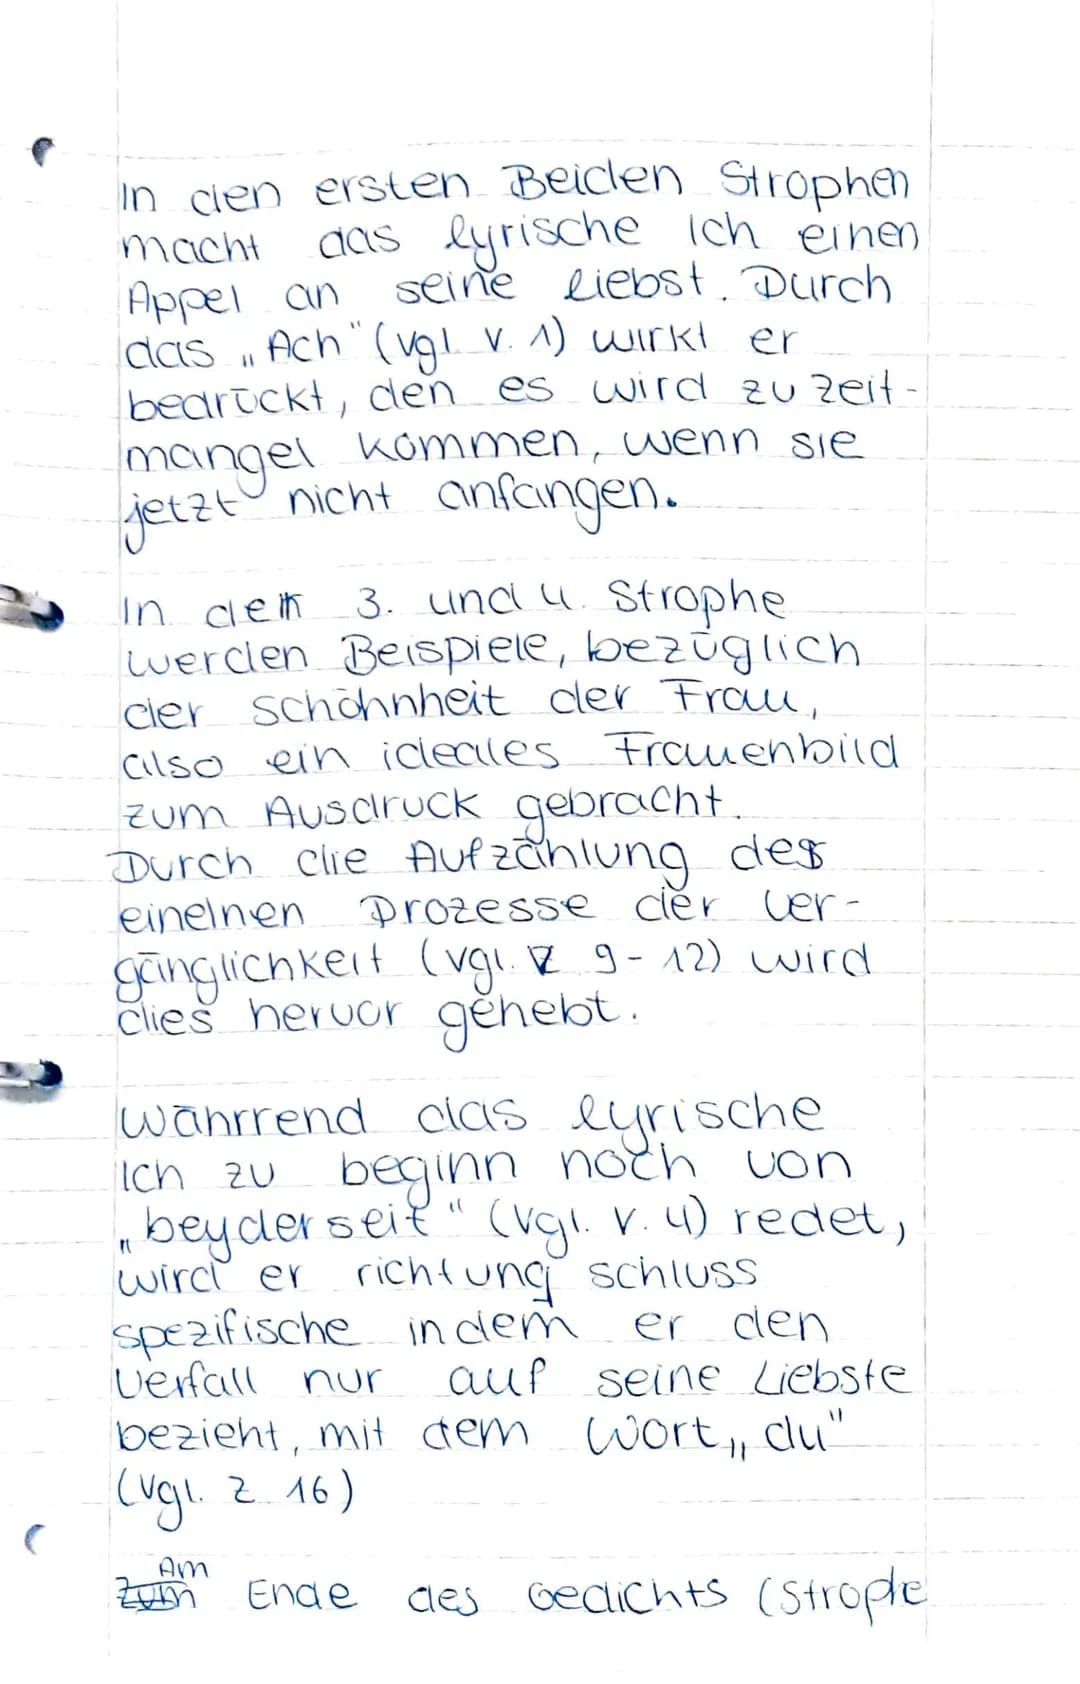 In den ersten Beiden Strophen
macht das lyrische Ich einen
Appel an seine liebst. Durch
das „Ach" (vgl. V. 1) wirkt er
bedrückt, den es wird zu zeit-
mangel kommen, wenn sie
jetzt nicht anfangen.
In dem 3. und 4. Strophe
werden Beispiele, bezüglich
der schöhnheit der Frau,
also ein ideales Frauenbild
zum Ausdruck gebracht.
Durch die Aufzählung des
einelnen Prozesse der Ver-
gänglichkeit (vgl. Z 9-12) wird
dies hervor gehebt.
Währrend das lyrische
Ich zu beginn noch von
„beyderseit" (vgl. V. 4) redet,
wird er richtung schluss
spezifische indem er den
Verfall nur auf seine Liebste
bezieht, mit dem Wort „du"
(vgl. Z 16)
Am
Zum Ende des Gedichts (Strophe